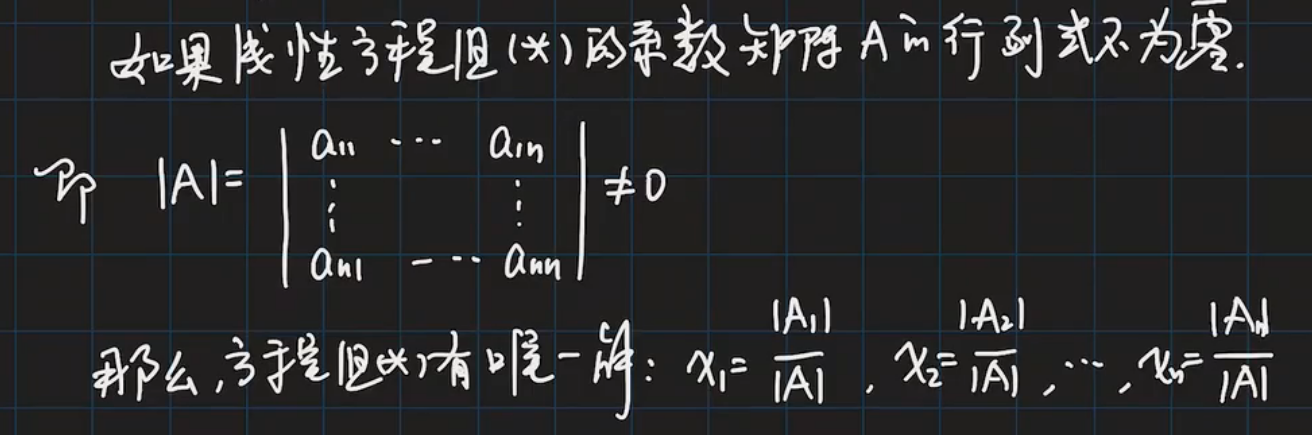 如果线性方程组(*)的系数矩阵A的行列式不为零.
即 |A|= | a11 ⋯ a1n ⋮ ⋮ an1 ⋯ ann | ≠0
那么,方程组(*)有唯一解: x1= |A1|/|A| , x2= |A2|/|A| ,⋯, xn= |An|/|A|